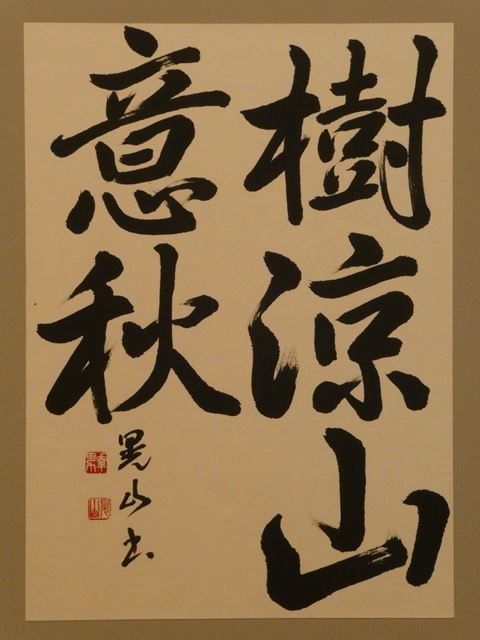 樹涼山
意秋
晃山書